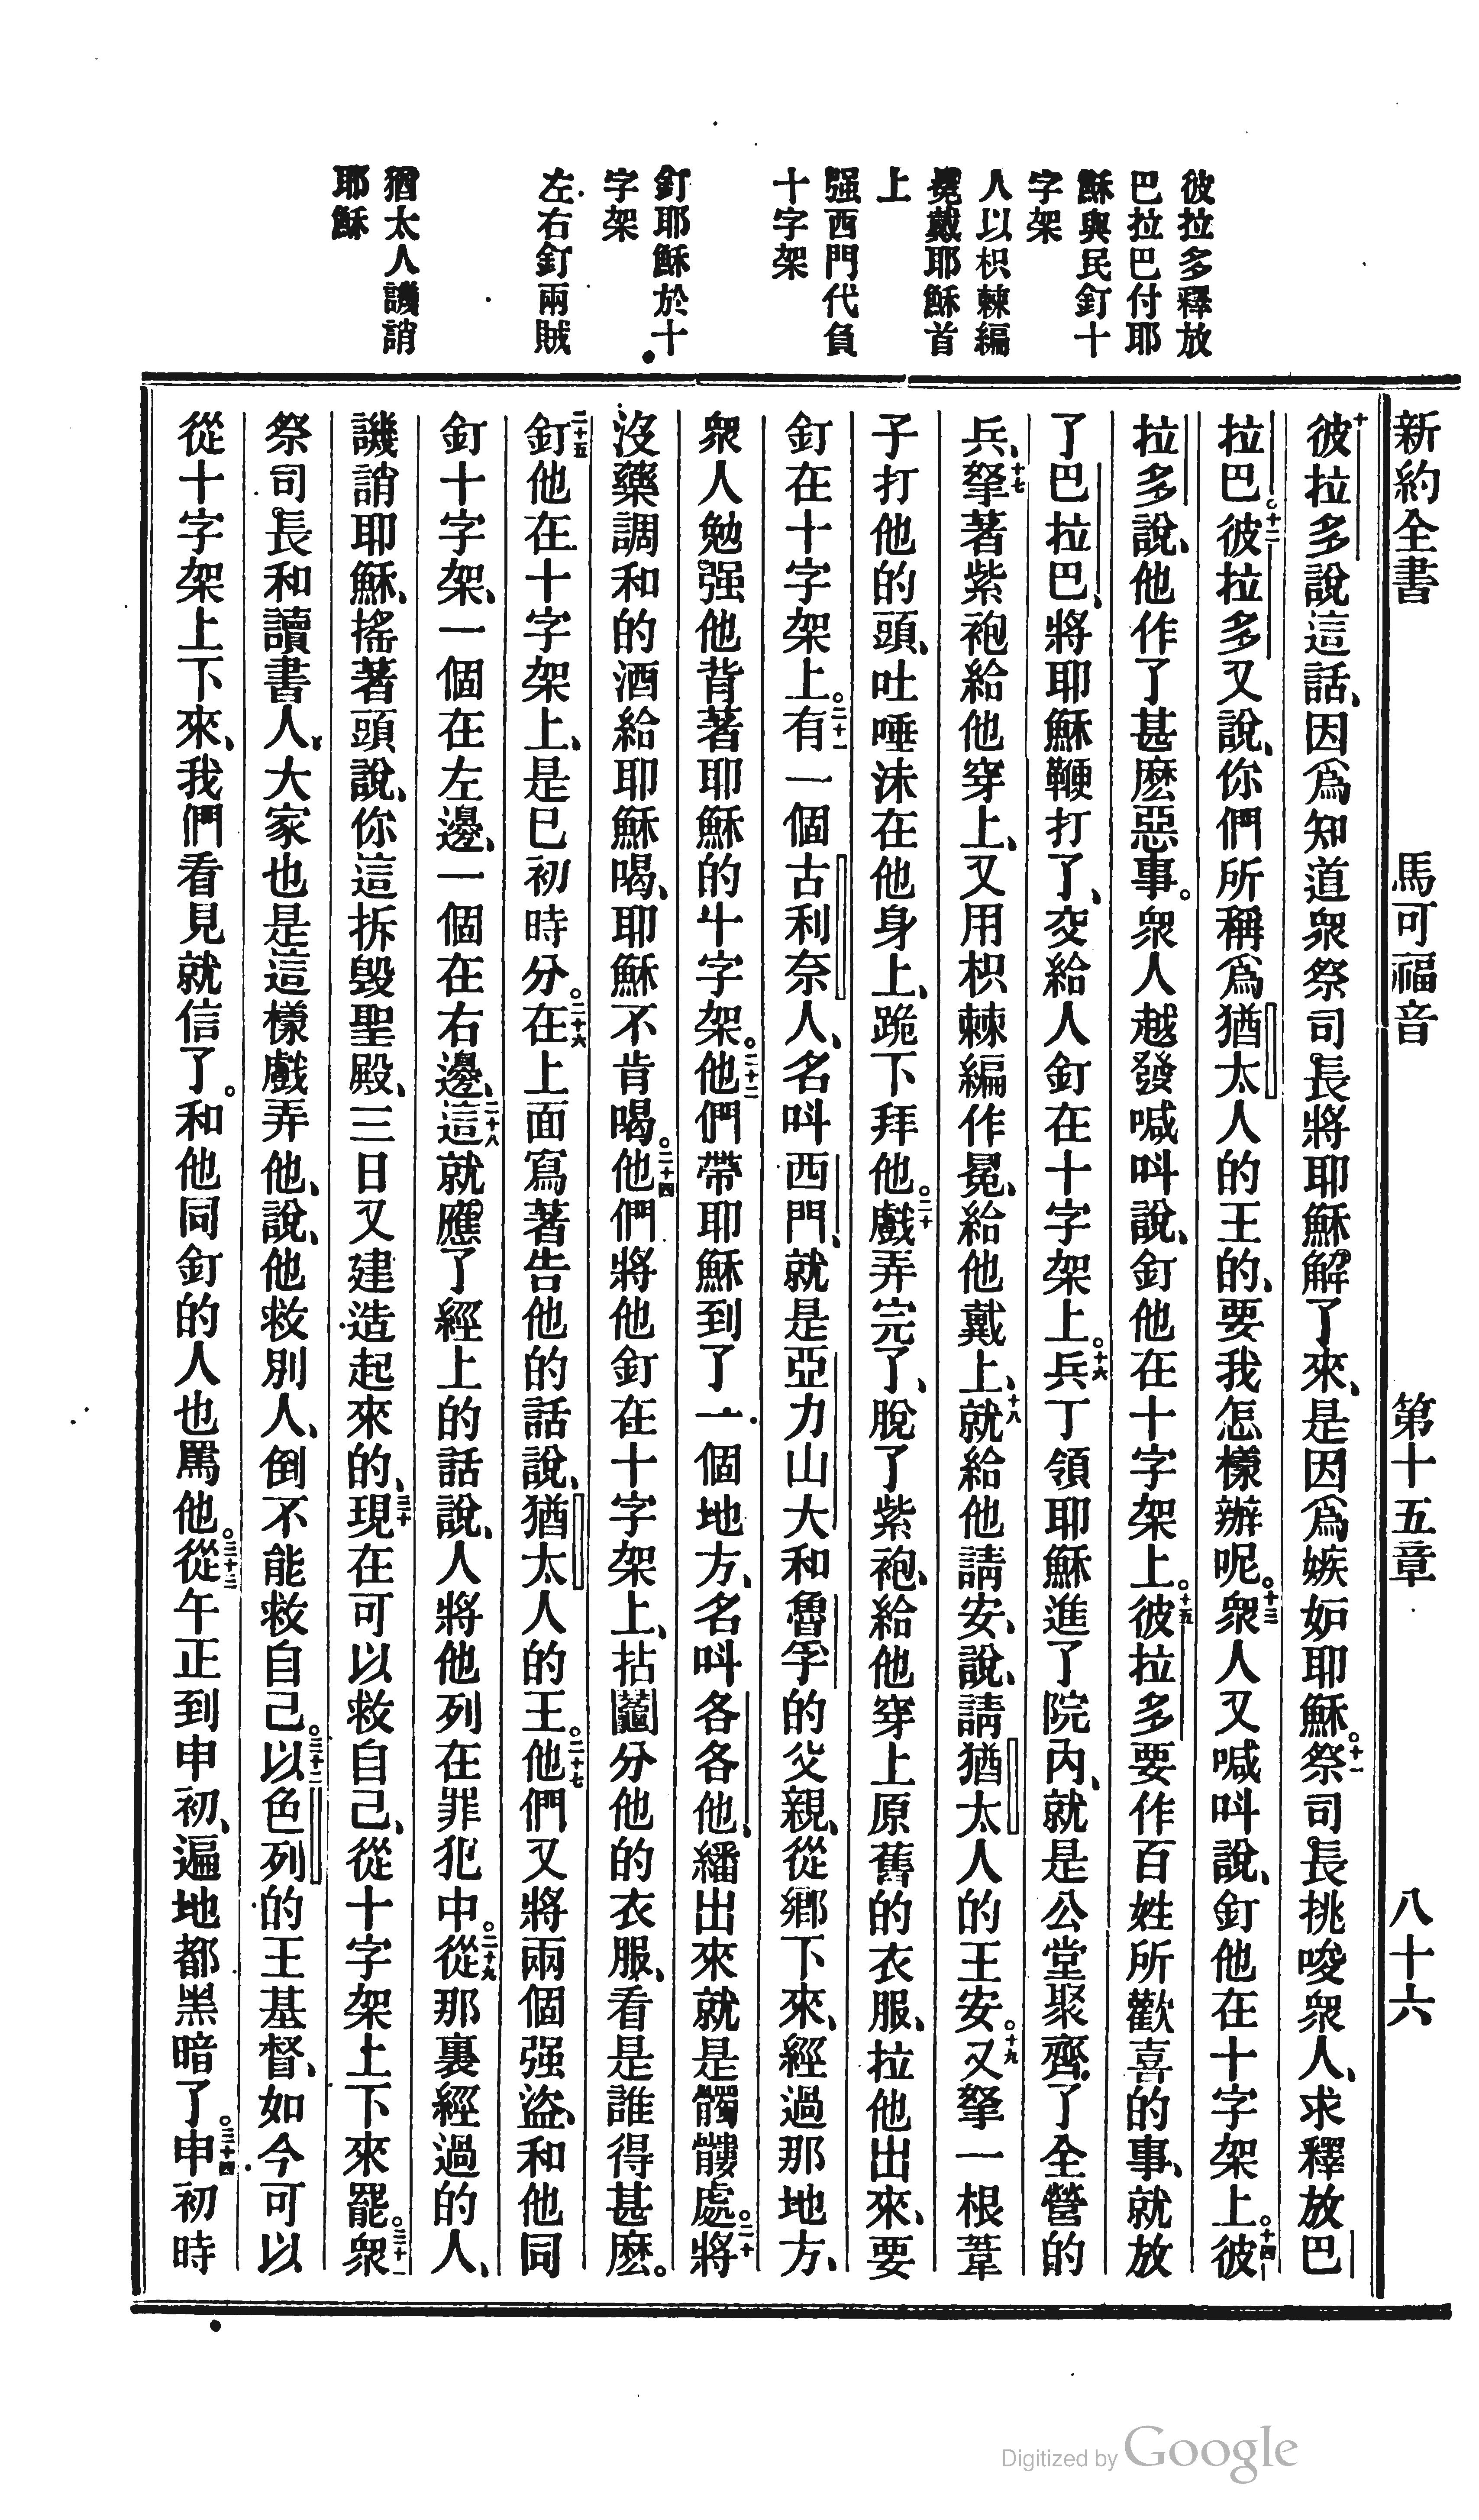 新約全書　馬可福音　第十五章　八十六
彼拉多釋放
巴拉巴付耶
穌與民釘十
字架
人以枳棘編
冕戴耶穌首
上
强西門代負
十字架
釘耶穌於十
字架
左右釘兩賊
猶太人譏誚
耶穌
十彼拉多說這話、因爲知道衆祭司長將耶穌解了來、是因爲嫉妒耶穌。十一祭司長挑唆衆人、求釋放巴
拉巴。十二彼拉多又說、你們所稱爲猶太人的王的、要我怎樣辦呢。十三衆人又喊呌說、釘他在十字架上。十四彼
拉多說、他作了甚麽惡事。衆人越發喊呌說、釘他在十字架上。十五彼拉多要作百姓所歡喜的事、就放
了巴拉巴、將耶穌鞭打了、交給人釘在十字架上。十六兵丁領耶穌進了院內、就是公堂聚齊了全營的
兵、十七拏著紫袍給他穿上、又用枳棘編作冕、給他戴上、十八就給他請安、說、請猶太人的王安。十九又拏一根葦
子打他的頭、吐唾沫在他身上、跪下拜他。二十戲弄完了、脫了紫袍、給他穿上原舊的衣服、拉他出來、要
釘在十字架上。二十一有一個古利奈人、名呌西門、就是亞力山大和魯孚的父親、從鄉下來、經過那地方、
衆人勉强他背著耶穌的十字架。二十二他們帶耶穌到了一個地方、名呌各各他、繙出來就是髑髏處。二十將
沒藥調和的酒給耶穌喝、耶穌不肯喝。二十四他們將他釘在十字架上、拈鬮分他的衣服、看是誰得甚麽。
二十五釘他在十字架上、是巳初時分。二十六在上面寫著告他的話說、猶太人的王。二十七他們又將兩個强盜、和他同
釘十字架、一個在左邊、一個在右邊、二十八這就應了經上的話說、人將他列在罪犯中。二十九從那裏經過的人、
譏誚耶穌、搖著頭說、你這拆毀聖殿、三日又建造起來的、三十現在可以救自己、從十字架上下來罷。三十一衆
祭司長和讀書人、大家也是這樣戲弄他、說、他救別人、倒不能救自己。三十二以色列的王基督、如今可以
從十字架上下來、我們看見就信了。和他同釘的人也罵他。三十三從午正到申初、遍地都黑暗了。三十四申初時
Digitized by Google